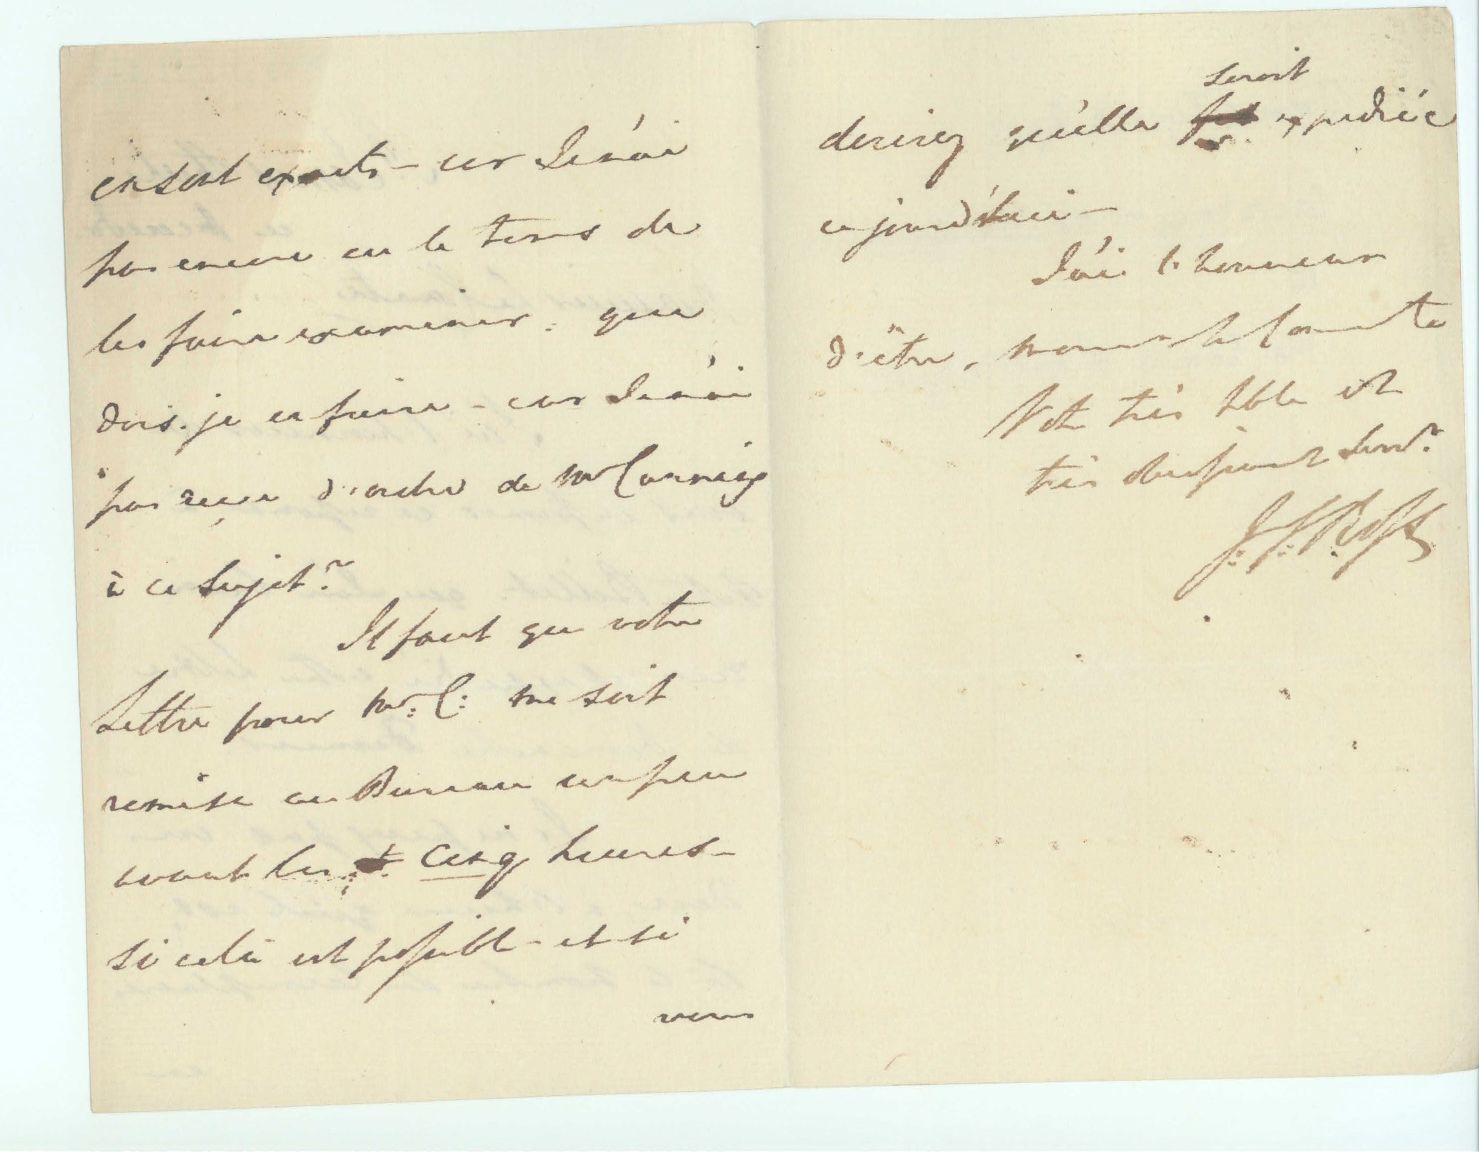 en sont exacts – car Je n'ai
pas encore eu le tems de
les faire examiner. que
dois-je en faire – car Je n'ai
pas reçu d'ordre de Mr Canning
à ce Sujet.
Il faut que votre
Lettre pour Mr. C: me soit
remise au Bureau un peu
avant les Cinq heures –
si cela est possible – et si
vous
seroit
desirez qu'elle expediée
aujourd'hui –
J'ai l'honneur
d'être, Monsr le Comte
Votre très hble et
très obeissant Servr